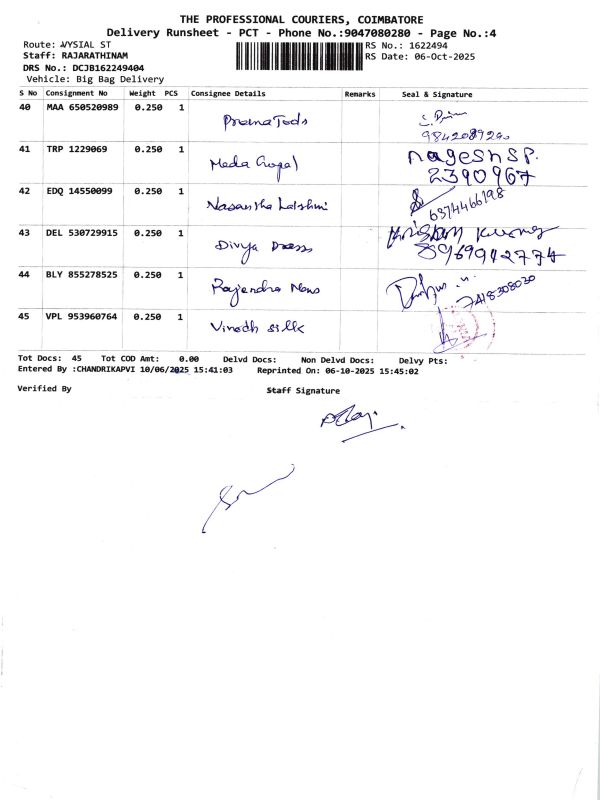 THE PROFESSIONAL COURIERS, COIMBATORE
Delivery Runsheet - PCT - Phone No.:9047080280 - Page No.:4
Route: VYSIAL ST
RS No.: 1622494
Staff: RAJARATHINAM
RS Date: 06-Oct-2025
DRS No.: DCJB162249404
Vehicle: Big Bag Delivery
S No Consignment No Weight PCS Consignee Details Remarks Seal & Signature
40 MAA 650520989 0.250 1 Prema Tods
9842089290
41 TRP 1229069 0.250 1 Mada Gopal nagesh SP.
2390967
42 EDQ 14550099 0.250 1 Vasantha Lakshmi
6374466198
43 DEL 530729915 0.250 1 Divya Dress Krishan Kumar
8969942774
44 BLY 855278525 0.250 1 Rajendra News
7418308030
45 VPL 953960764 0.250 1 Vinodh silk
Tot Docs: 45 Tot COD Amt: 0.00 Delvd Docs: Non Delvd Docs: Delvy Pts:
Entered By :CHANDRIKAPVI 10/06/2025 15:41:03 Reprinted On: 06-10-2025 15:45:02
Verified By Staff Signature